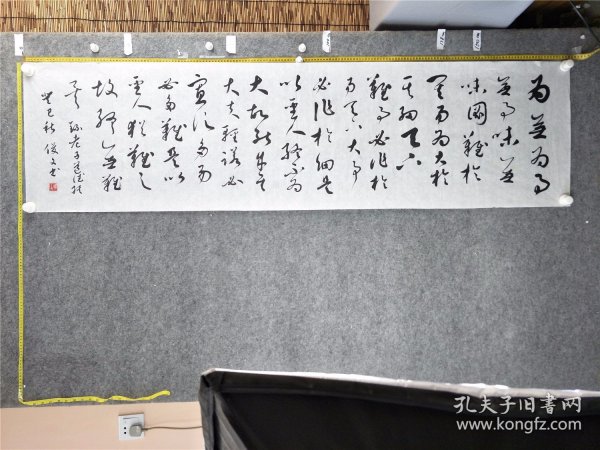 为無为事
無事味無
味圖難於
其易为大於
其細天下
難事必作於
易天下大事
必作於細是
以聖人終不为
大故能成其
大夫輕諾必
寡信多易
必多難是以
聖人猶難之
故終無難
矣 老子道德经
癸巳秋 俊文书
孔夫子旧书网
www.kongfz.com